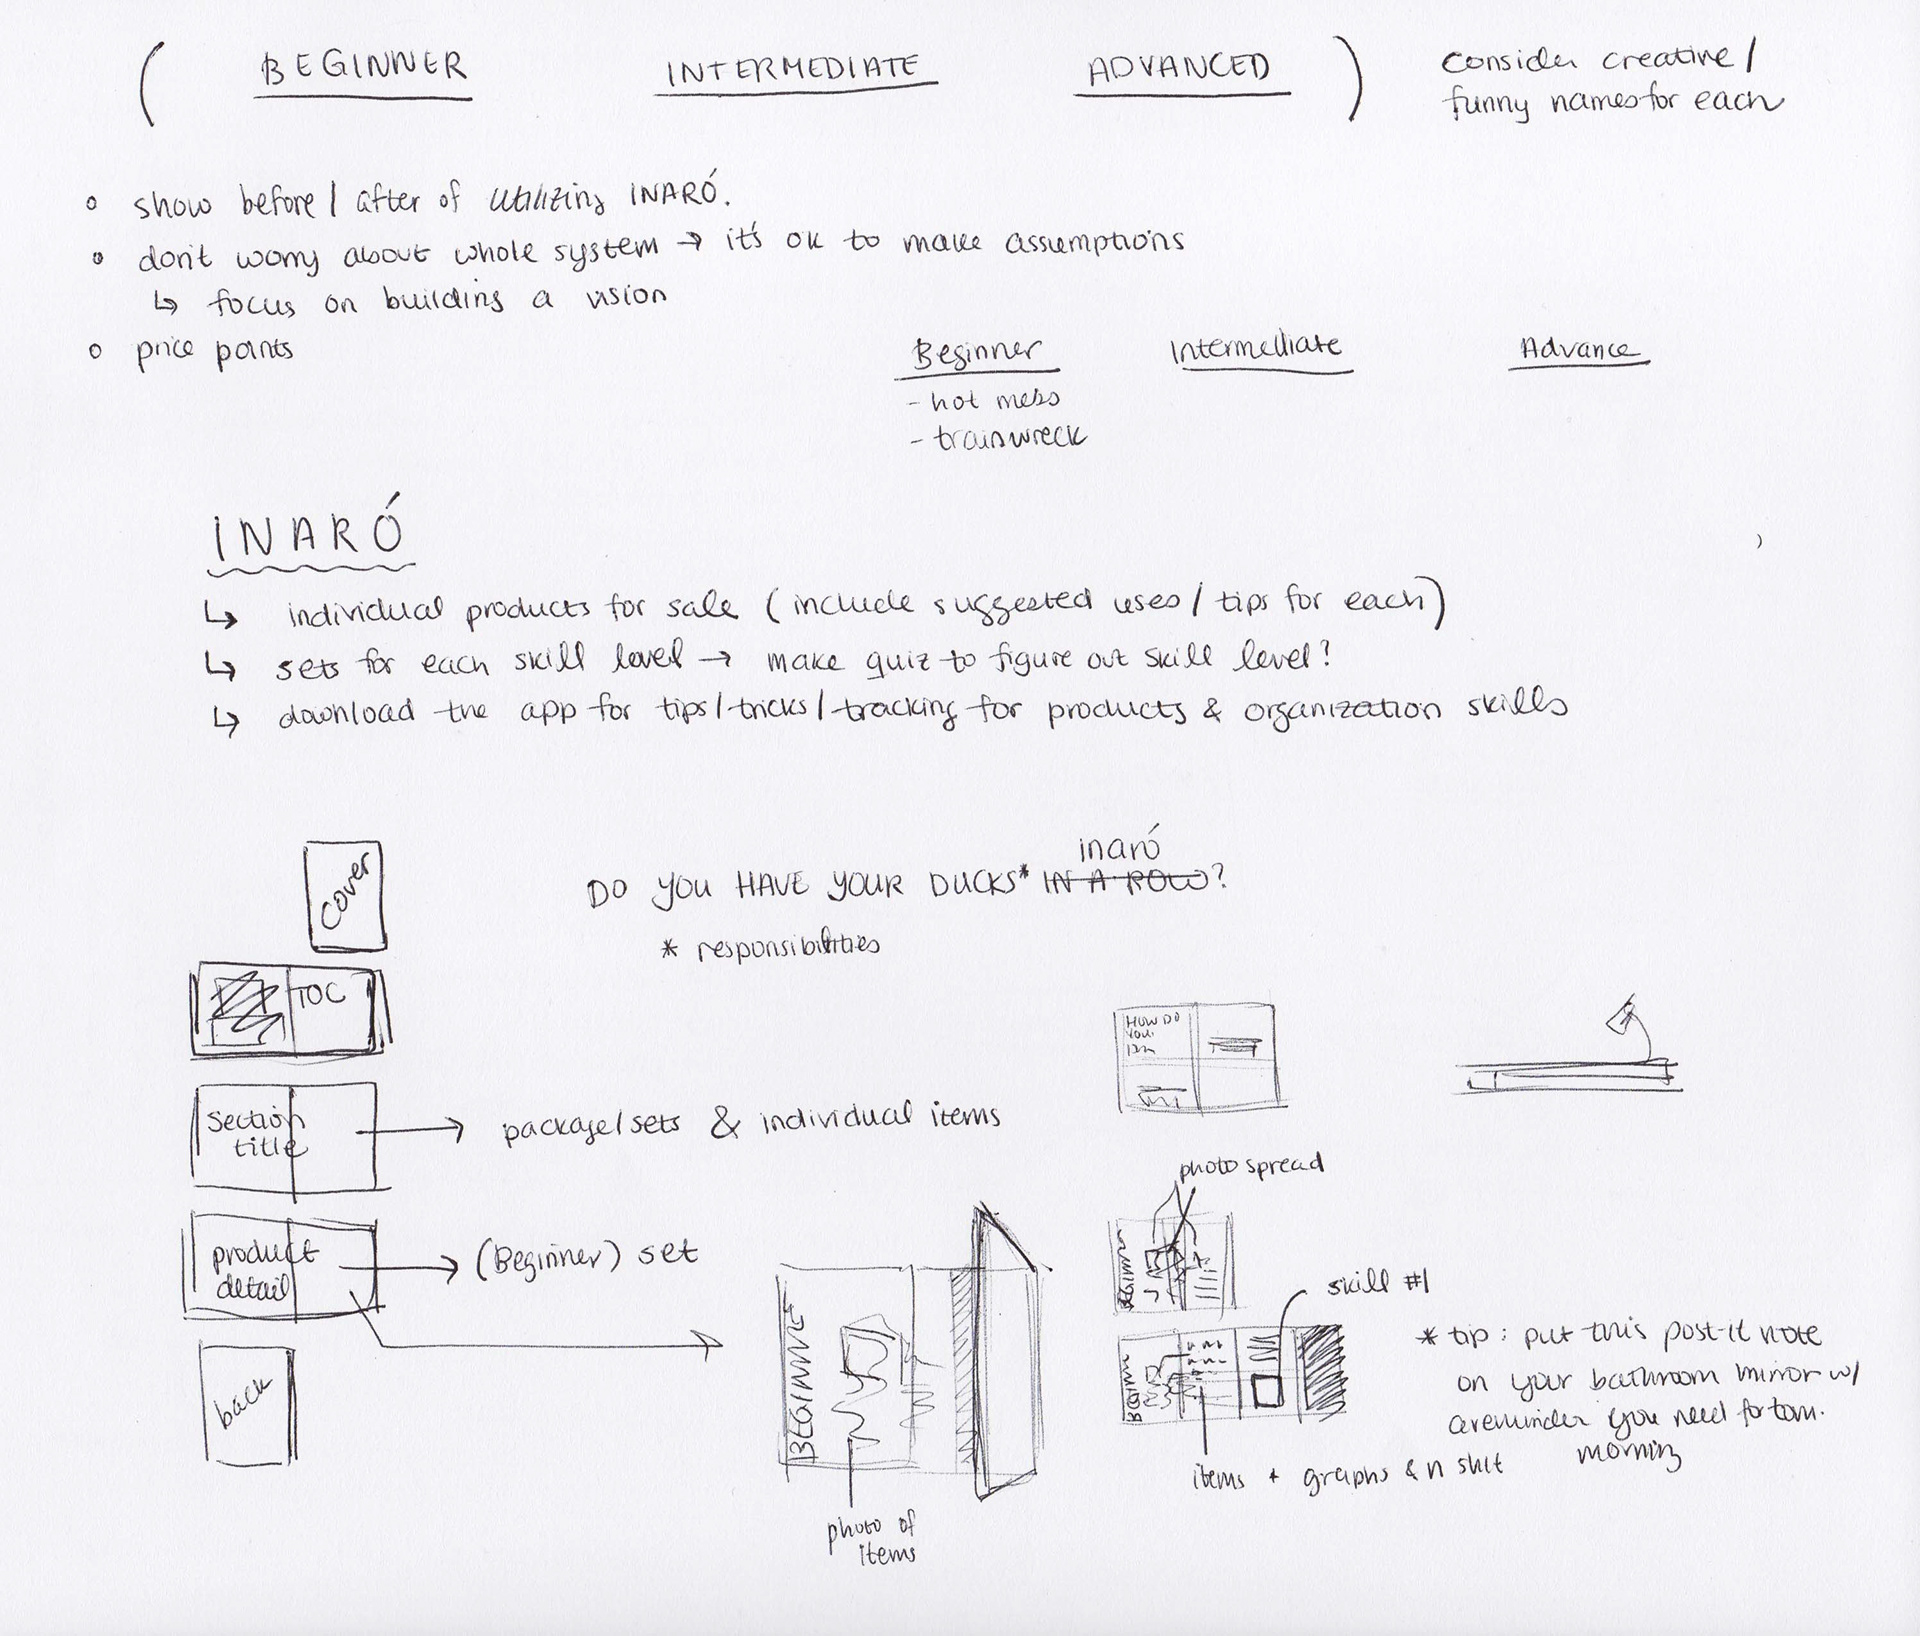 ( BEGINNER INTERMEDIATE ADVANCED ) consider creative /
funny names for each
○ show before / after of utilizing INARÓ.
○ don't worry about whole system → it's ok to make assumptions
↳ focus on building a vision
○ price points
Beginner Intermediate Advance
- hot mess
- trainwreck
INARÓ
↳ individual products for sale (include suggested uses / tips for each)
↳ sets for each skill level → make quiz to figure out skill level?
↳ download the app for tips / tricks / tracking for products & organization skills
cover
inaró
DO YOU HAVE YOUR DUCKS* IN A ROW?
* responsibilities
TOC
HOW DO
YOU
section
title
package/sets & individual items
photo spread
product
detail
(Beginner) set
BEGINNER
BEGINN
skill #1
BEGINN
* tip: put this post-it note
on your bathroom mirror w/
a reminder you need for tom.
morning
back
items + graphs & n shit
photo of
items